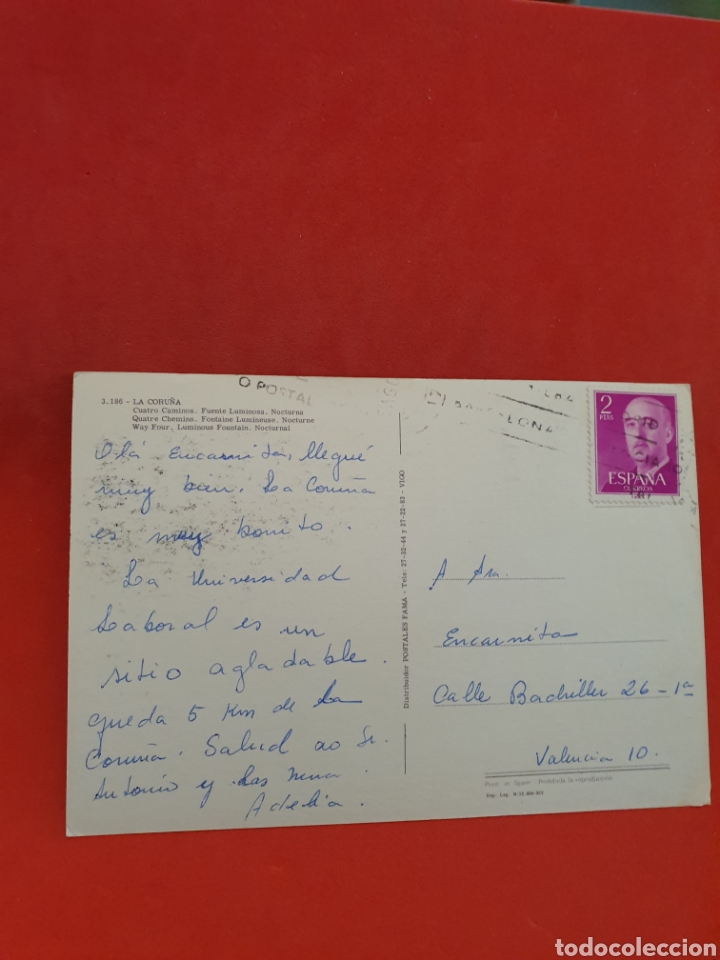 3.186 - LA CORUÑA
Cuatro Caminos. Fuente Luminosa. Nocturna
Quatre Chemins. Fontaine Lumineuse. Nocturne
Way Four. Luminous Fountain. Nocturnal
Olá Encarnita, llegué
muy bien. La Coruña
es muy bonito.
La Universidad
Laboral es un
sitio agladable.
queda 5 Km de La
Coruña. Salud ao Sr.
Antonio y las nena.
Adelia.
Distribuidor POSTALES FAMA - Tels: 27-32-44 y 27-32-83 - VIGO
O POSTAL
BARCELONA
2
PTAS
ESPAÑA
CORREOS
A Sra.
Encarnita
Calle Bachiller 26-1ª
Valencia 10.
Prohibida la reproducción
Dep. Leg.
todocoleccion